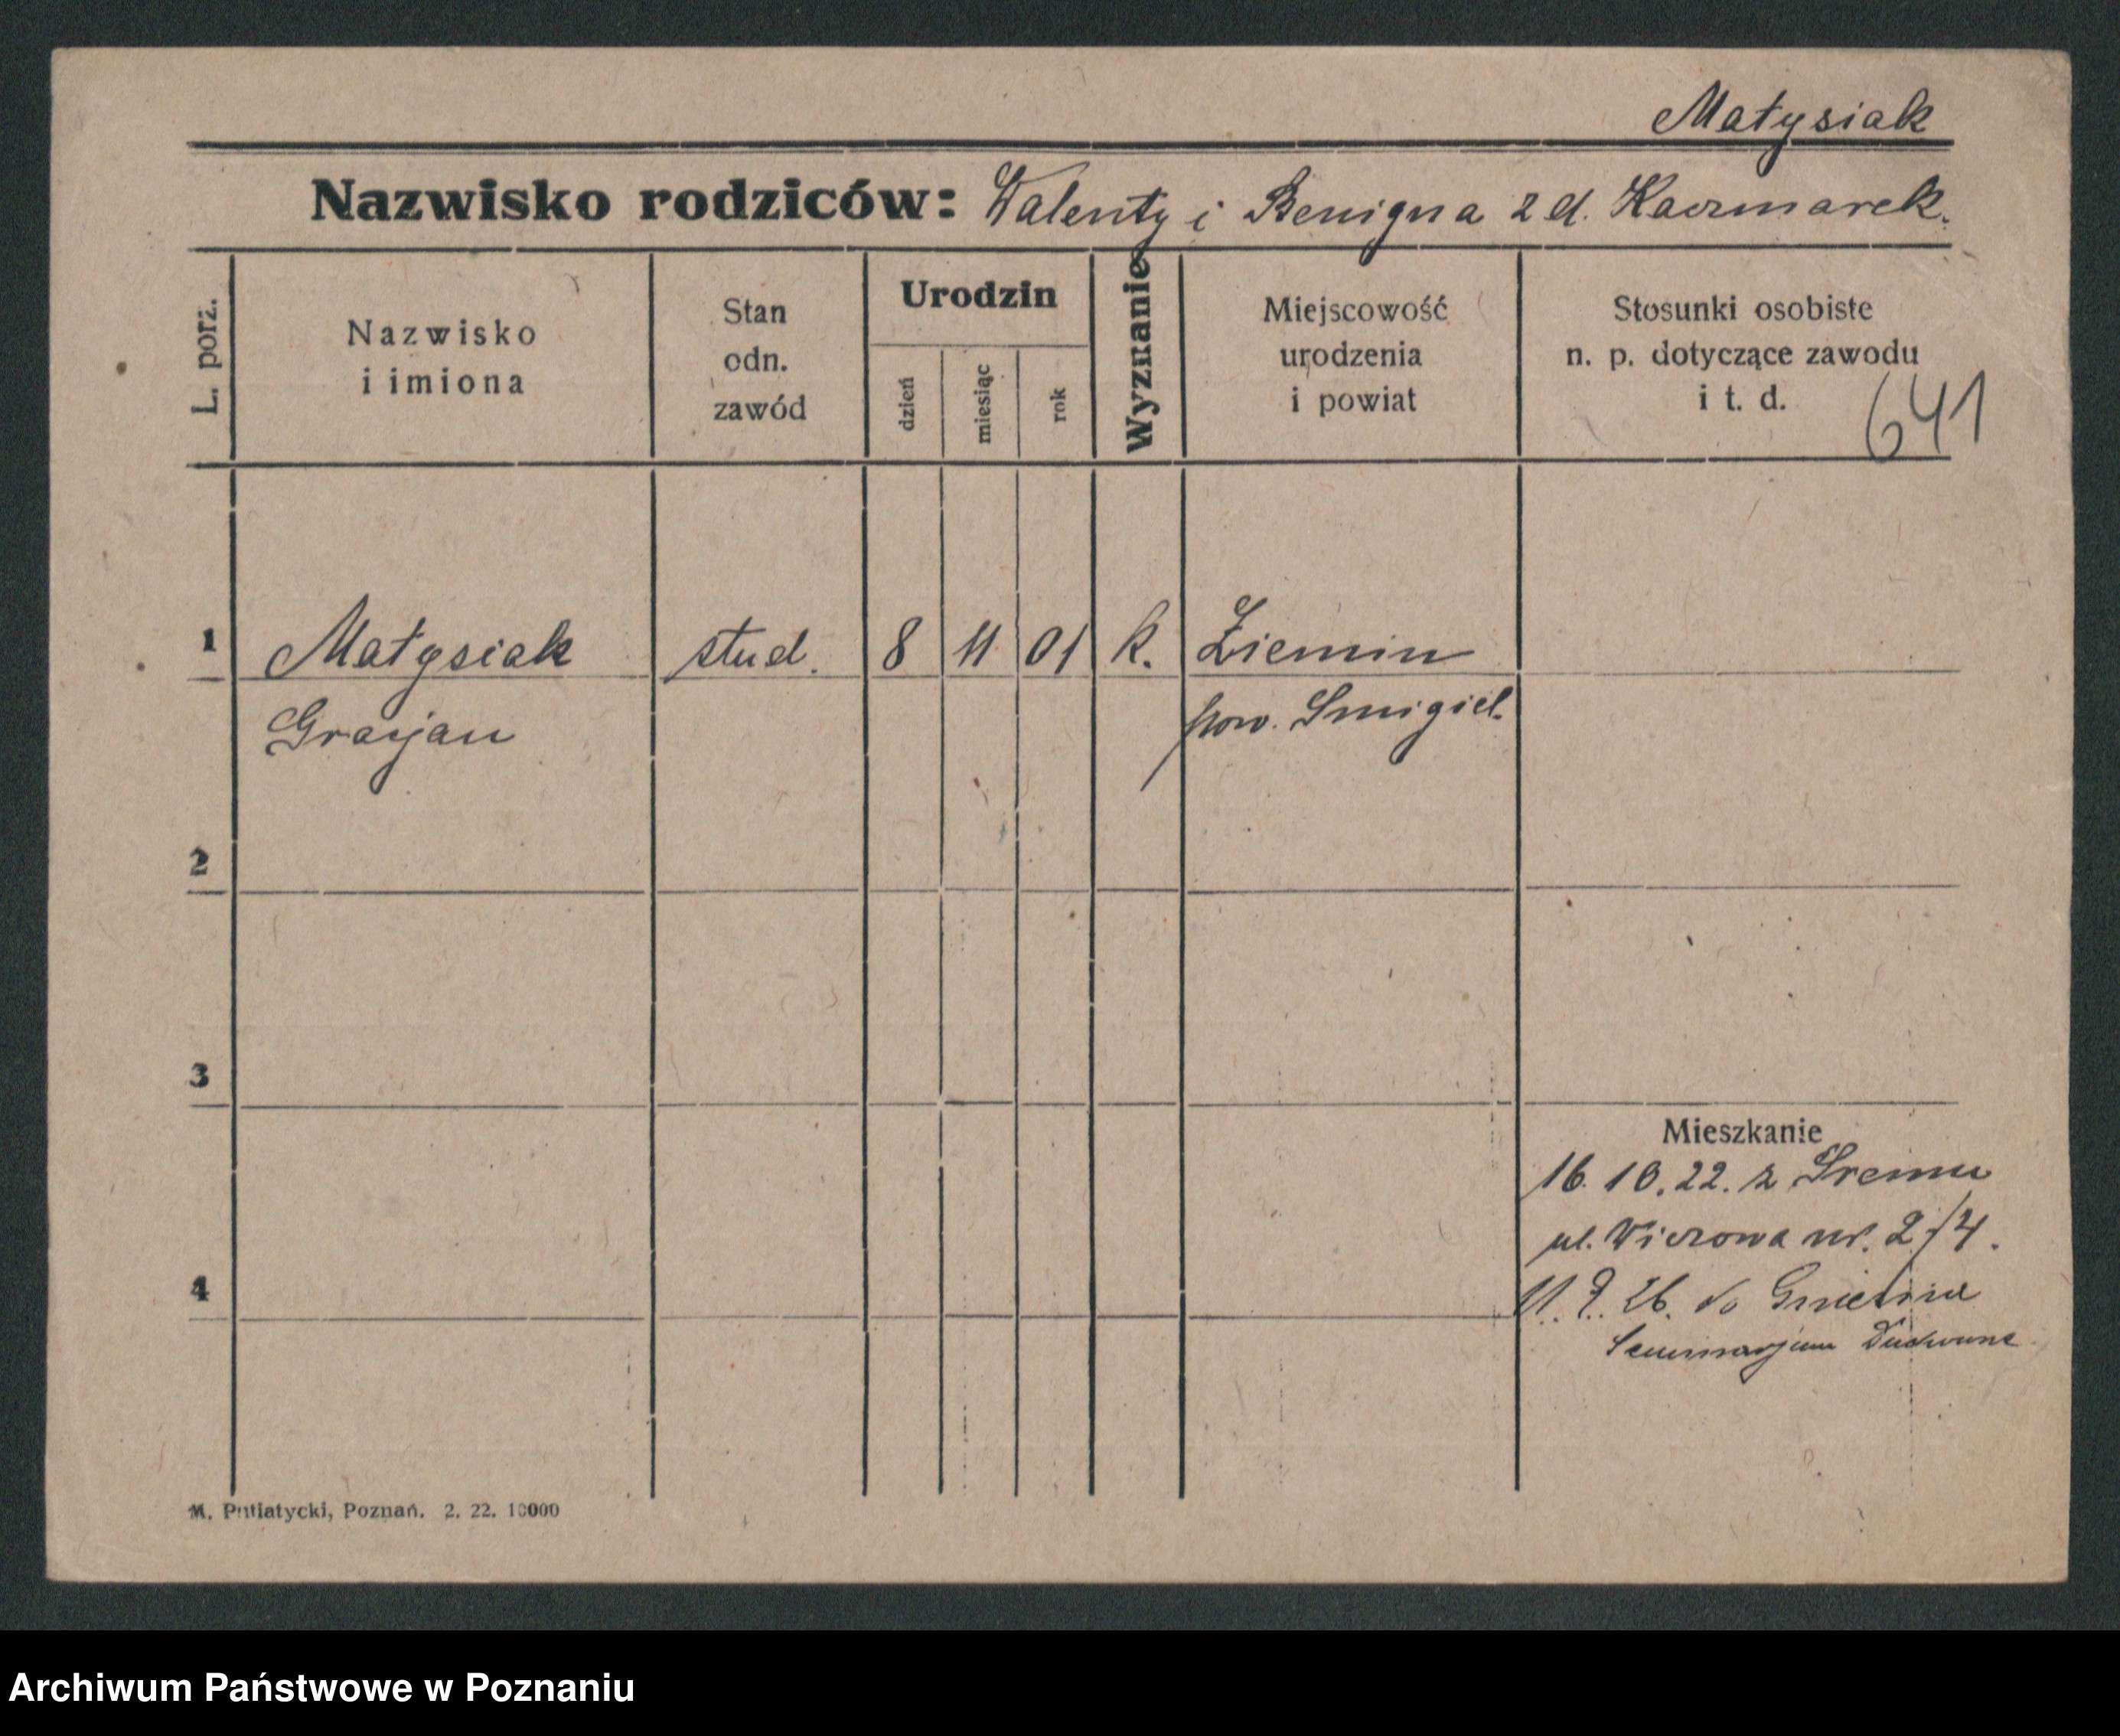 Matysiak
Nazwisko rodziców: Walenty i Benigna z d. Kaczmarek.
L. porz.
Nazwisko
i imiona
Stan
odn.
zawód
Urodzin
dzień
miesiąc
rok
Wyznanie
Miejscowość
urodzenia
i powiat
Stosunki osobiste
n. p. dotyczące zawodu
i t. d.
641
1 Matysiak stud. 8 11 01 k. Ziemin
Gracjan pow. Smigiel.
2
3
Mieszkanie
16. 10. 22. z Sremu
ul. Wieżowa nr. 2/4.
4
11. 9. 26. do Gniezna
Seminarjum Duchowne
M. Putiatycki, Poznań. 2. 22. 10000
Archiwum Państwowe w Poznaniu